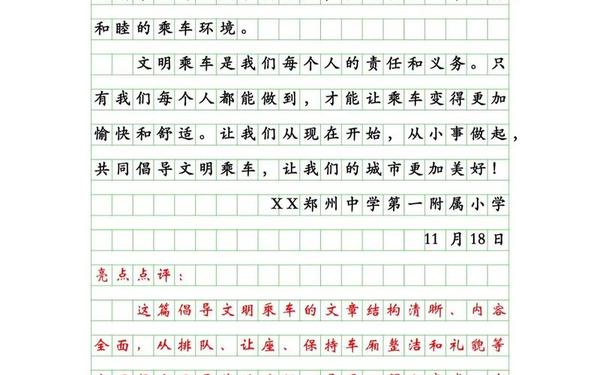 和睦的乘车环境。
文明乘车是我们每个人的责任和义务。只
有我们每个人都能做到，才能让乘车变得更加
愉快和舒适。让我们从现在开始，从小事做起，
共同倡导文明乘车，让我们的城市更加美好！
XX郑州中学第一附属小学
11月18日
亮点点评：
这篇倡导文明乘车的文章结构清晰、内容
全面，从排队、让座、保持车厢整洁和礼貌等